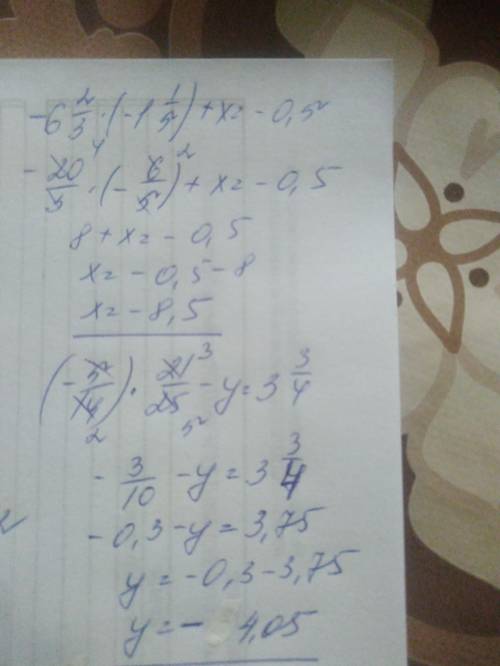 -6 2/3 · (-1 1/5) + x = -0,5
-20/3 · (-6/5) + x = -0,5
4 2
8 + x = -0,5
x = -0,5 - 8
x = -8,5
(-5/14) · 21/25 - y = 3 3/4
3
2 5
-3/10 - y = 3 3/4
-0,3 - y = 3,75
y = -0,3 - 3,75
y = - 4,05